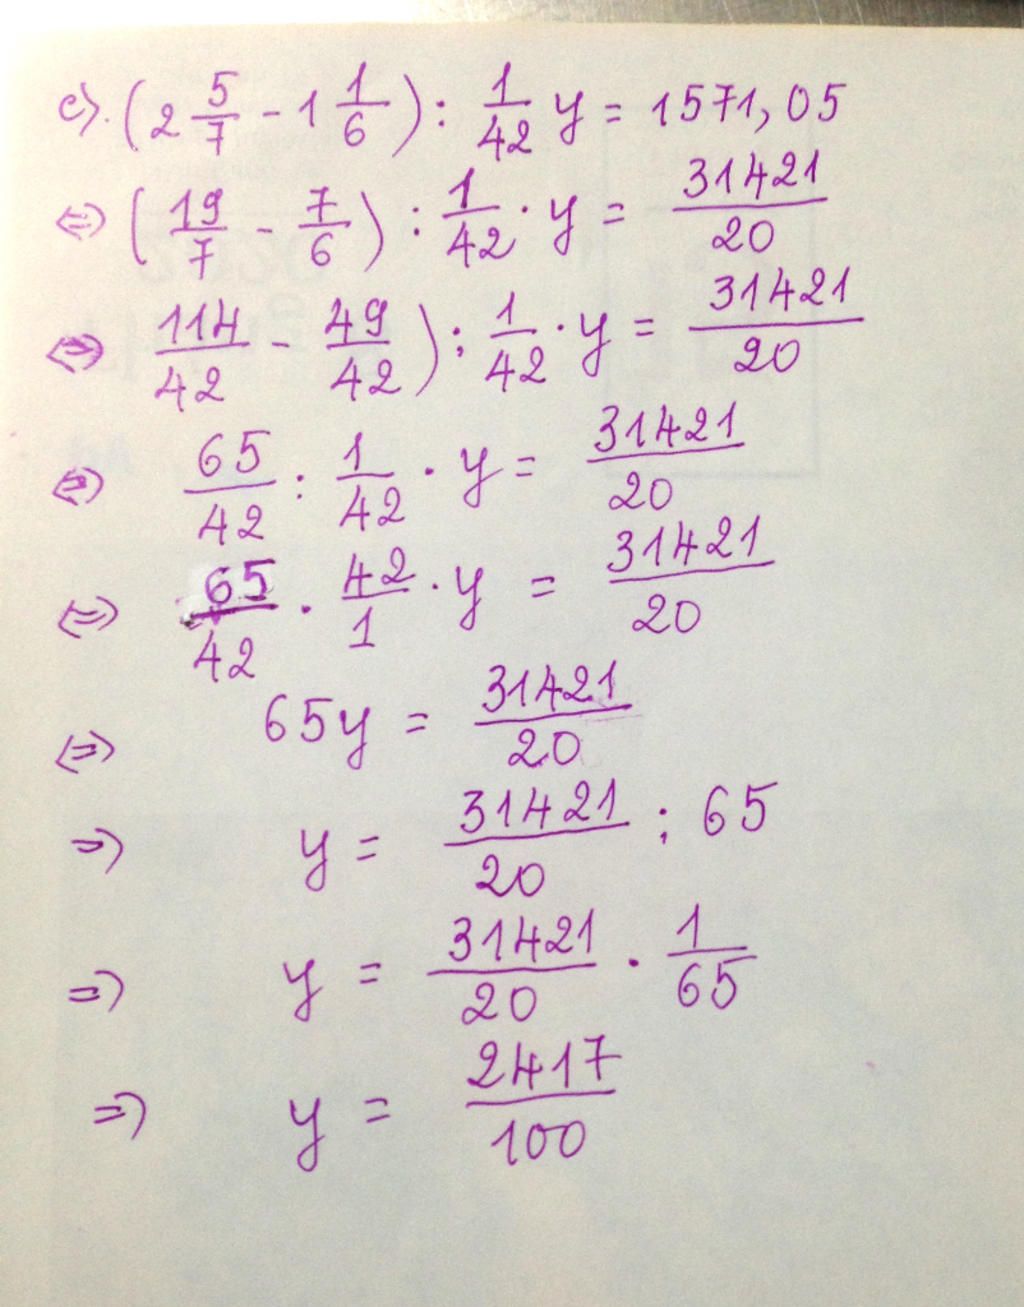 c). (2 5/7 - 1 1/6) : 1/42 y = 1571,05
⇔ (19/7 - 7/6) : 1/42 · y = 31421/20
⇔ 114/42 - 49/42) : 1/42 · y = 31421/20
⇔ 65/42 : 1/42 · y = 31421/20
⇔ 65/42 · 42/1 · y = 31421/20
⇔ 65y = 31421/20
⇒ y = 31421/20 : 65
⇒ y = 31421/20 · 1/65
⇒ y = 2417/100